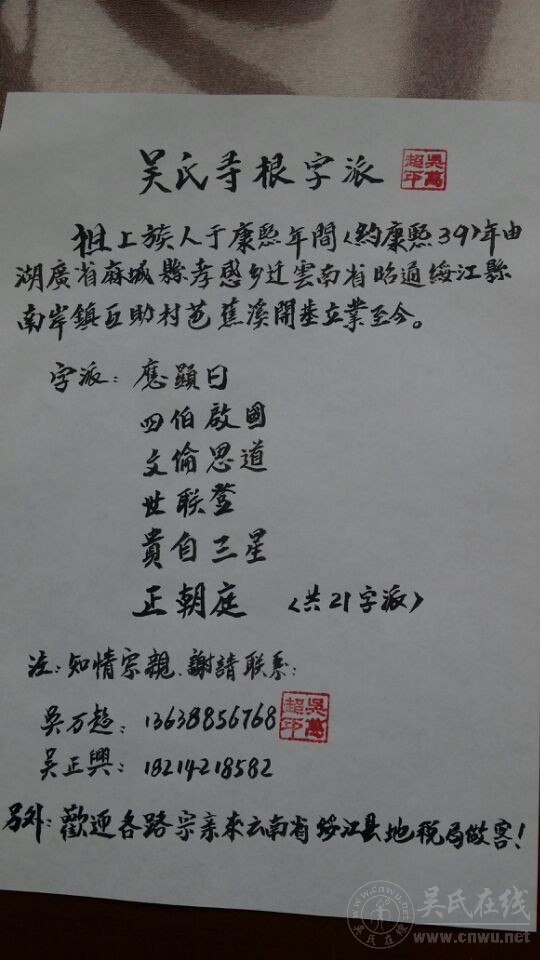 吴氏寻根字派
吴萬超印
祖上族人于康熙年間〈約康熙39〉年由
湖廣省麻城縣孝感乡迁雲南省昭通綏江縣
南岸鎮互助村芭蕉溪開基立業至今。
字派：應顯日
四伯啟國
文倫思道
世联登
貴自三星
正朝庭 〈共21字派〉
注：知情宗親、謝請联系：
吴万超：13638856768
吴萬超印
吴正興：18214218582
另外：歡迎各路宗亲來云南省绥江县地税局做客！
吴氏在线
www.cnwu.net
吴氏在線